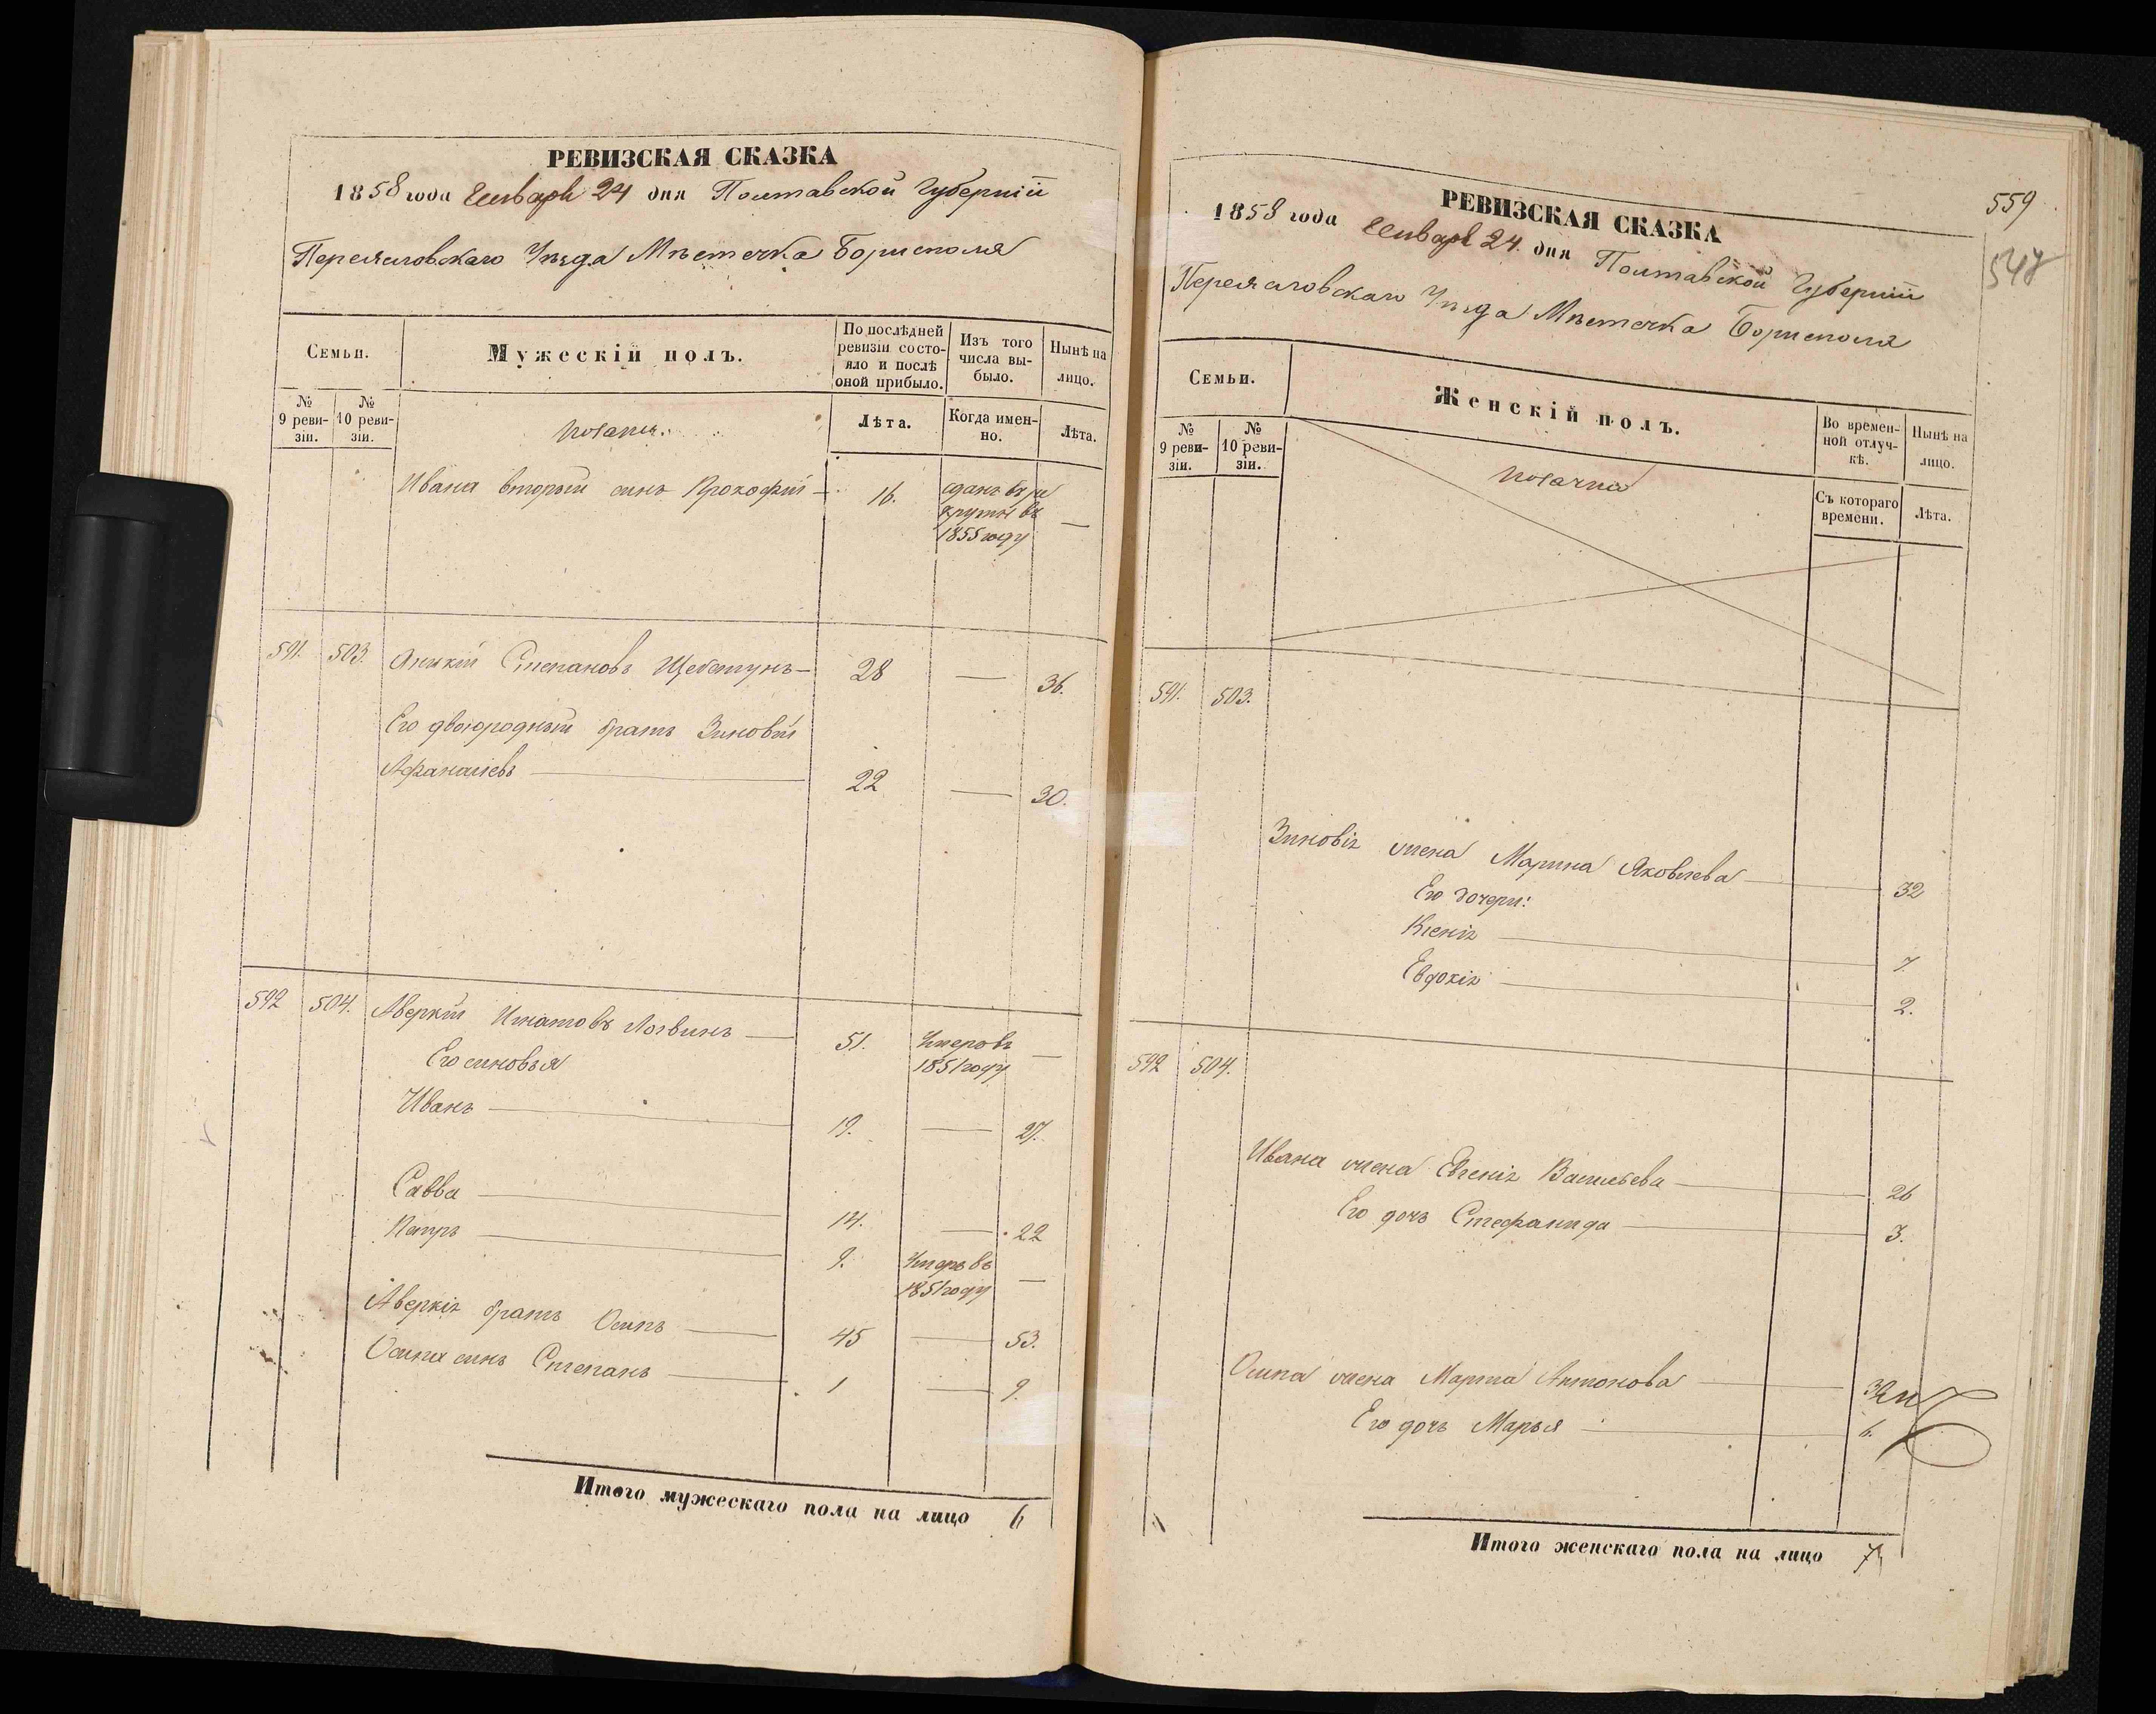 РЕВИЗСКАЯ СКАЗКА
1858 года Генваря 24 дня Полтавской Губерніи
Переяславскаго Уѣзда Мѣстечка Борисполя
Семьи.
Мужескій полъ.
По послѣдней ревизіи состояло и послѣ оной прибыло.
Изъ того числа выбыло.
Нынѣ на лицо.
№ 9 ревизіи.
№ 10 ревизіи.
Козаки.
Лѣта.
Когда именно.
Лѣта.
Ивана вторый сынъ Прокофій — 16. сданъ въ ре
круты въ —
1855 году
591. 503. Аникій Степановъ Щебетунъ — 28 — 36.
Его двоюродный братъ Зиновій
Афанасіевъ — 22 — 30.
592 504. Аверкій Игнатовъ Логвинъ — 51. Умеръ въ —
1851 году
Его сыновья
Иванъ — 19. — 27.
Савва — 14. — 22
Петръ — 9. Умеръ въ —
1851 году
Аверкія братъ Осипъ — 45 — 53.
Осипа сынъ Степанъ — 1 — 9.
Итого мужескаго пола на лицо 6
559
547
РЕВИЗСКАЯ СКАЗКА
1858 года Генваря 24. дня Полтавской Губерніи
Переяславскаго Уѣзда Мѣстечка Борисполя
Семьи.
Женскій полъ.
Во временной отлучкѣ.
Нынѣ на лицо.
№ 9 ревизіи.
№ 10 ревизіи.
Козачки
Съ котораго времени.
Лѣта.
591. 503.
Зиновія жена Марина Яковлева — 32
Его дочери:
Ксенія — 7.
Евдокія — 2.
592 504.
Ивана жена Евгенія Васильева — 26
Его дочь Стефанида — 3.
Осипа жена Марта Антонова —
Его дочь Марья — 6.
Итого женскаго пола на лицо 7